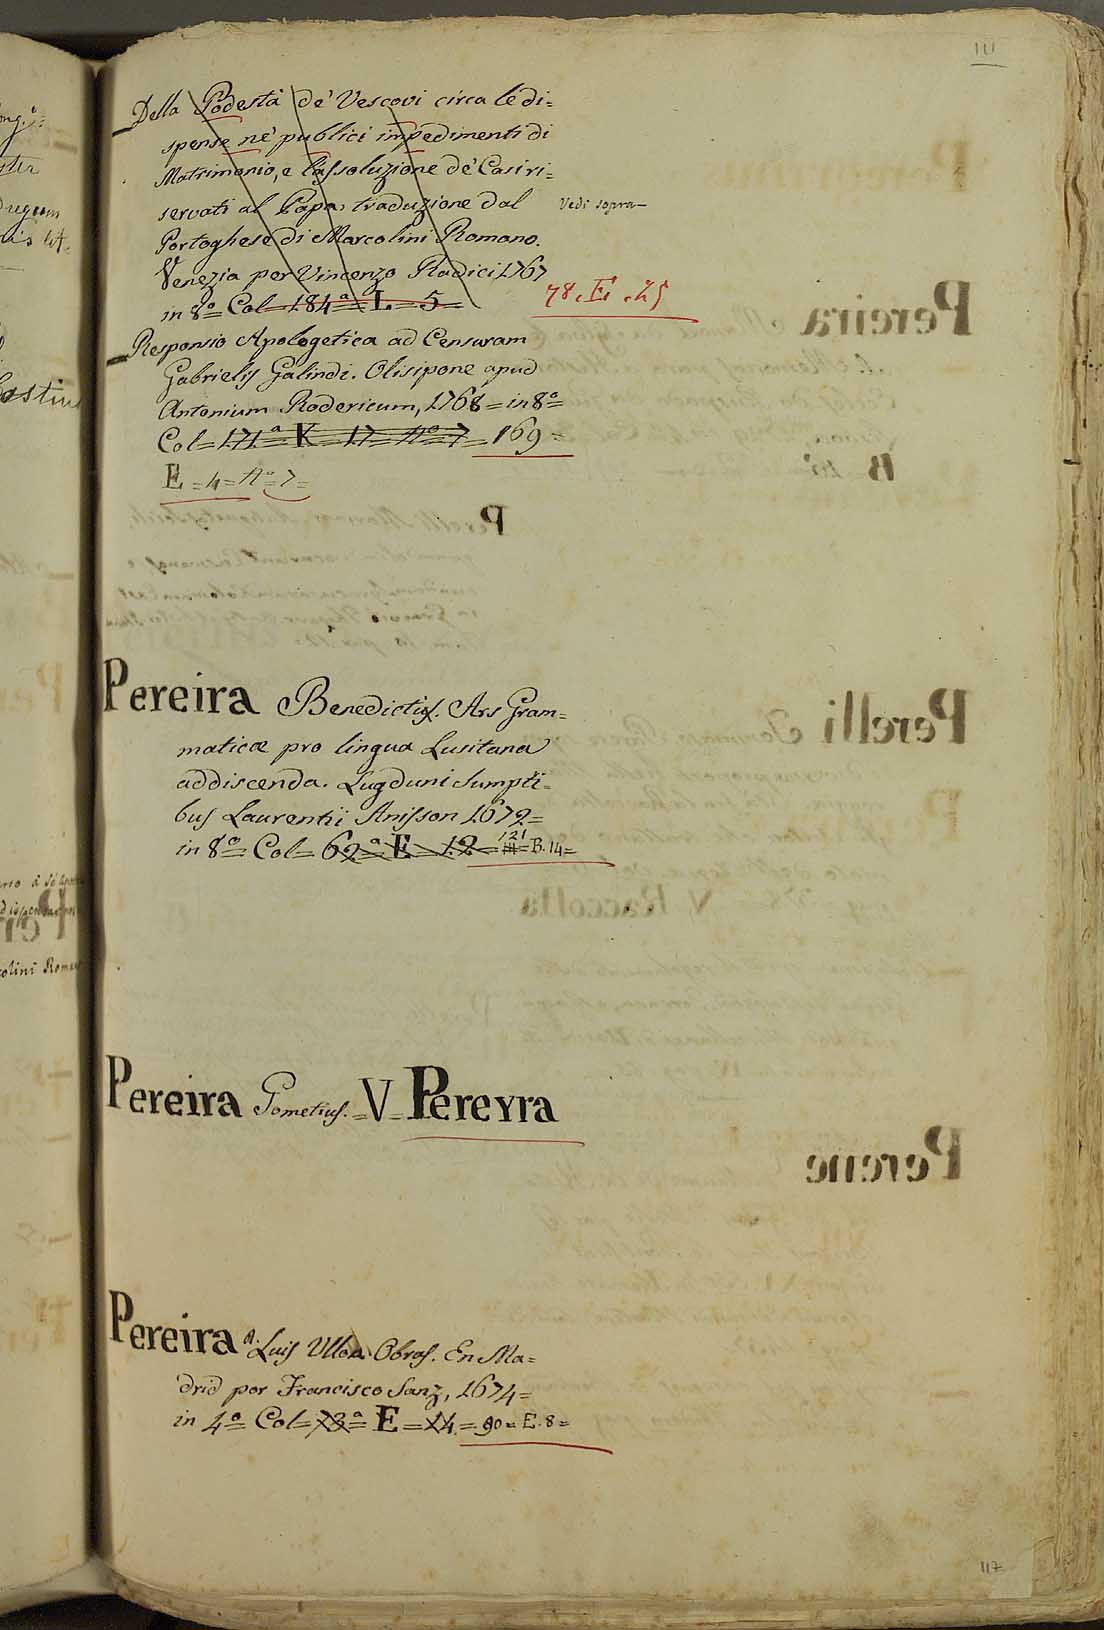 111
Della Podestà de' Vescovi circa le di=
spense ne' publici impedimenti di
Matrimonio, e l'assoluzione de' Casi ri=
servati al Papa, traduzione dal
Portoghese di Marcolini Romano.
Venezia per Vincenzo Radici 1767
in 8º= Col= 184ª= L= 5=
Vedi sopra—
78. E. 25
Responsio Apologetica ad Censuram
Gabrielis Galindi. Olisipone apud
Antonium Rodericum, 1768= in 8º=
Col= 171ª= K= 17= Nº= 7= 169=
E= 4= Nº= 7=
Pereira Benedictus. Ars Gram=
maticæ pro lingua Lusitana
addiscenda. Lugduni Sumpti=
bus Laurentii Anisson 1672=
in 8º= Col= 62ª= E= 12= 121= B. 14=
Pereira Gometius. =V= Pereyra
Pereira d. Luis Ulloa Obras. En Ma=
drid por Francisco Sanz, 1674=
in 4º= Col= 73ª= E= 14= 90= E. 8=
117